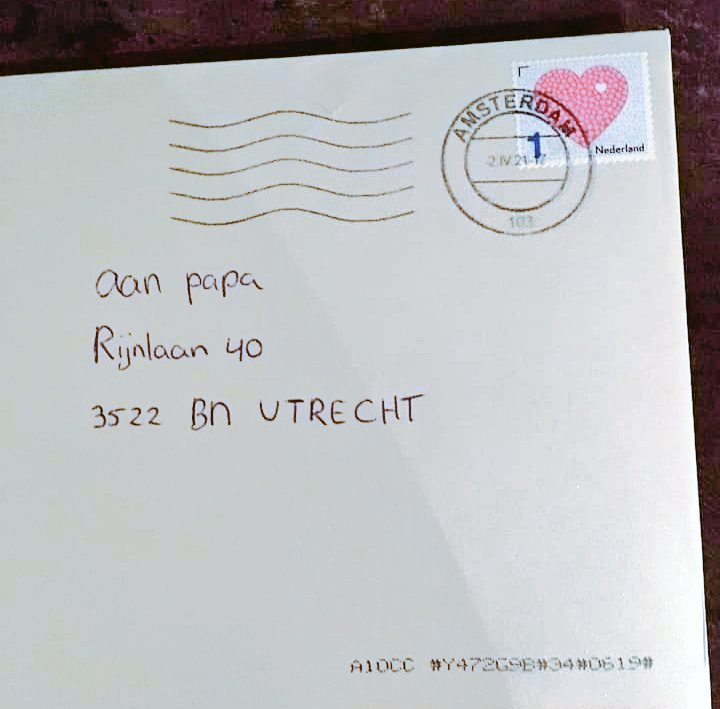 AMSTERDAM
1
Nederland
-2.IV.21-17
103
Aan papa
Rijnlaan 40
3522 BN UTRECHT
A10CC #Y472G9B#34#0619#